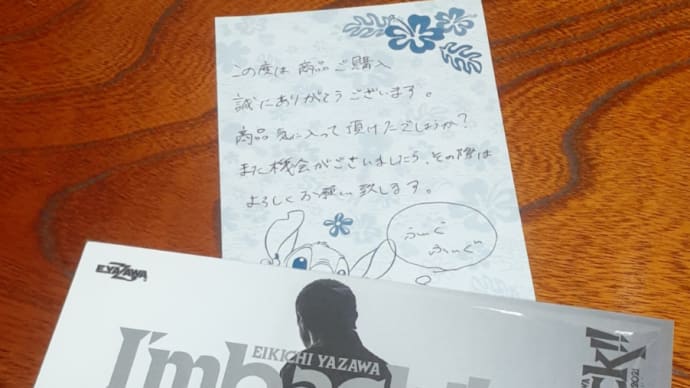 この度は商品ご購入
誠にありがとうございます。
商品気に入って頂けたでしょうか?
また機会がございましたら、その際は
よろしくお願い致します。
E.YAZAWA
EIKICHI YAZAWA
I'm back!!
k!!
2021